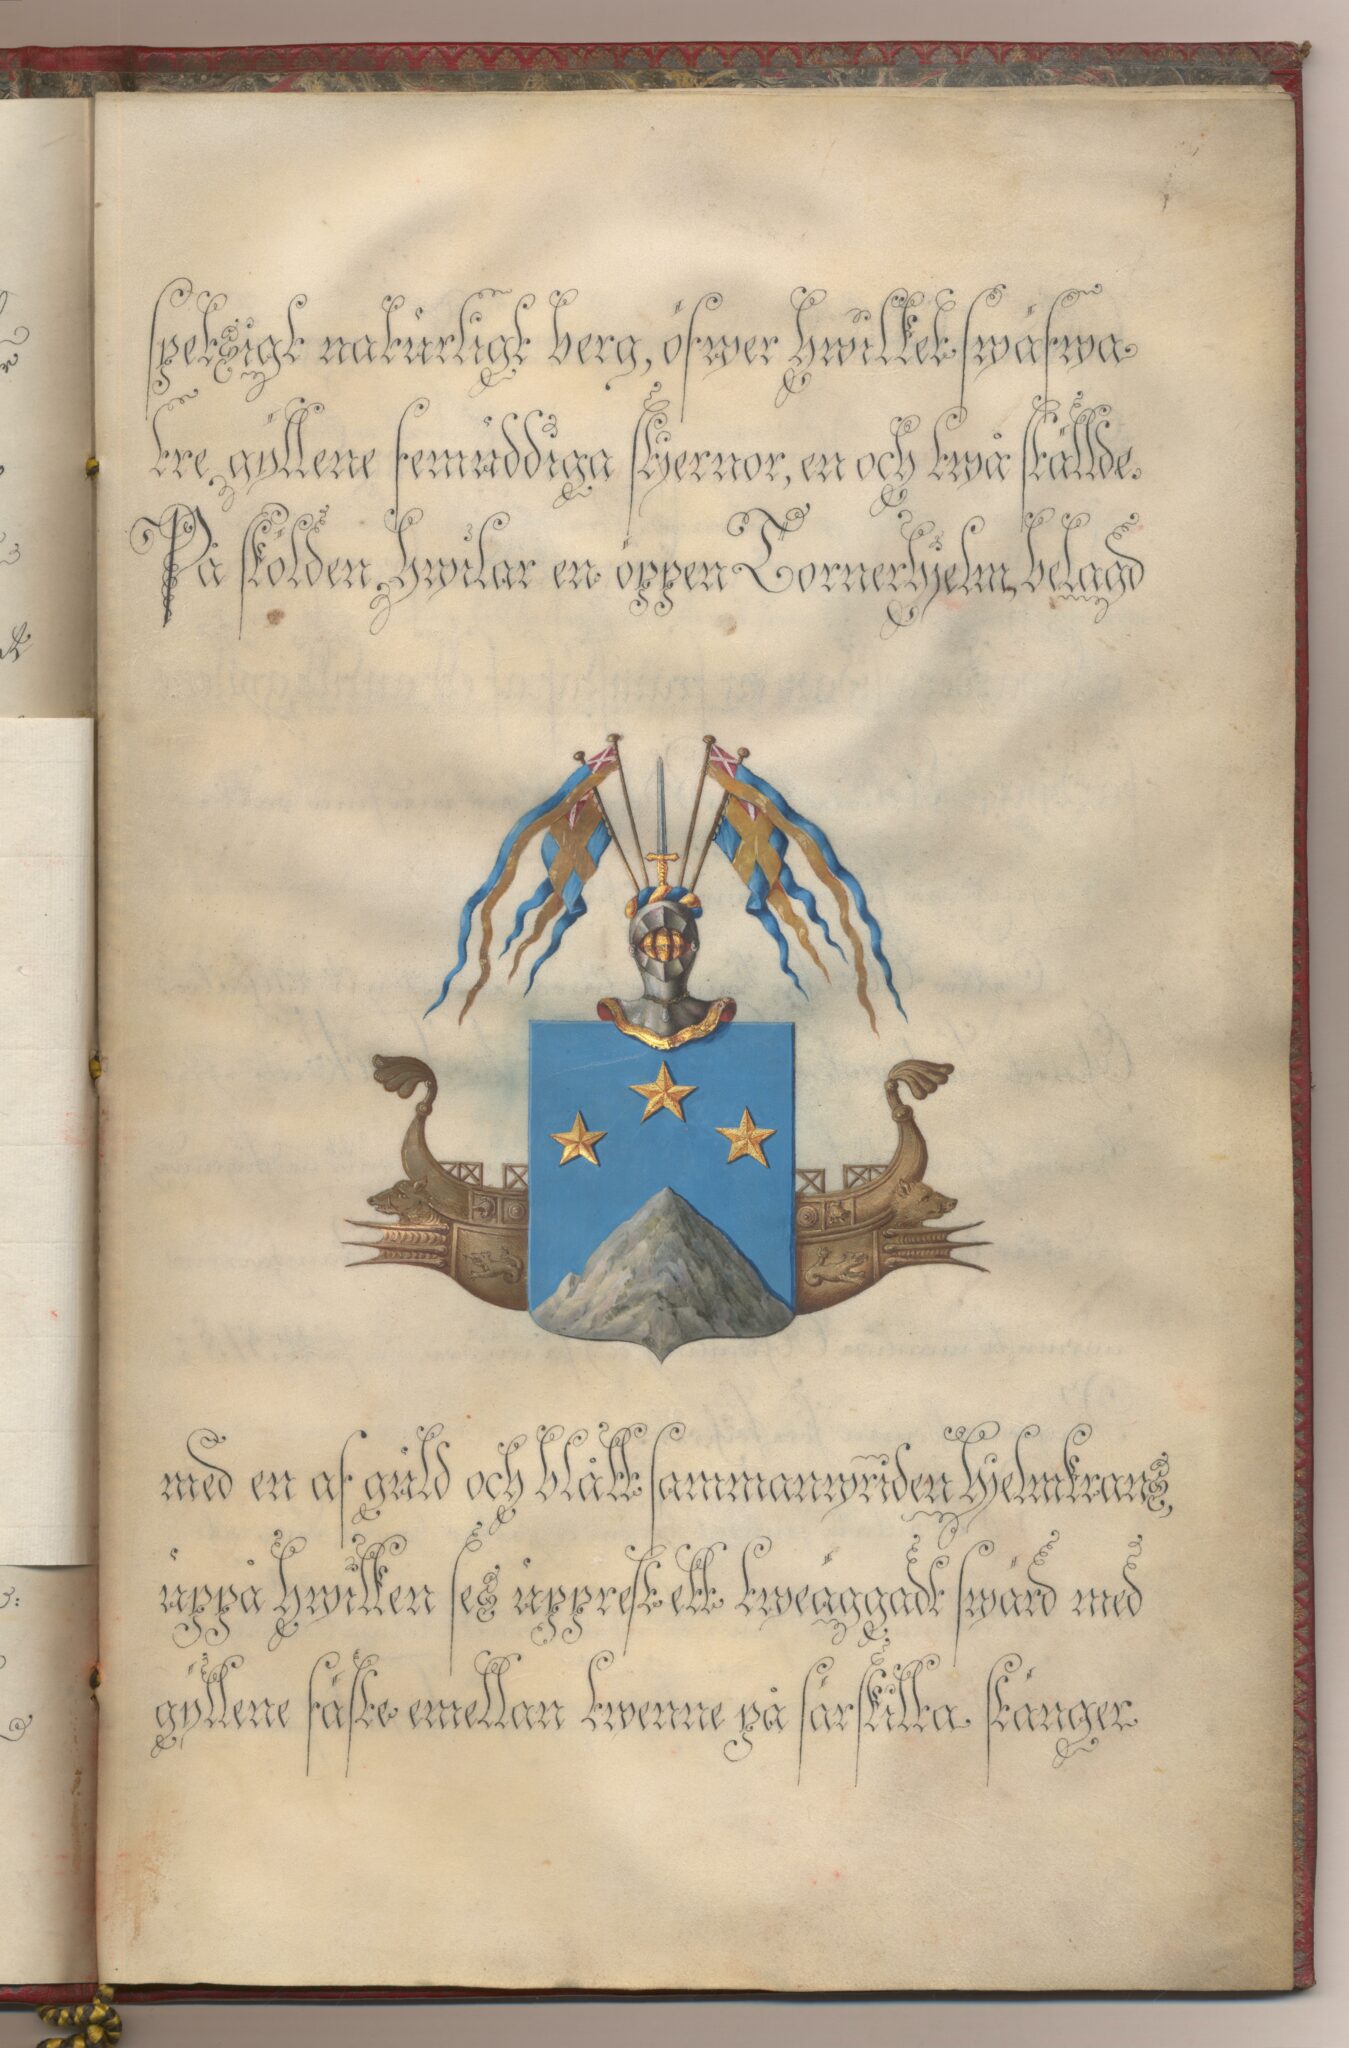 spetzigt naturligt berg, öfwer hwilket swäfwa
tre gyllene femuddiga stjernor, en och twå stälde.
På skölden hwilar en öppen Tornerhjelm, belagd
med en af guld och blått sammanwriden hjelmkrans,
uppå hwilken ses upprest ett tweäggadt swärd med
gyllene fäste emellan twenne på särskilta stänger